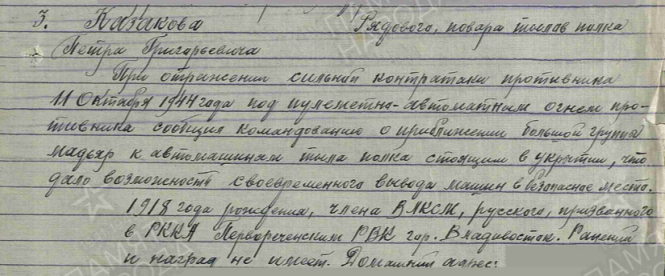 3. Казакова Рядового, повара тылов полка
Петра Григорьевича
При отражении сильной контратаки противника
11 Октября 1944 года под пулеметно-автоматным огнем про-
тивника сообщил командованию о приближении большой группы
мадьяр к автомашинам тыла полка стоящим в укрытии, что
дало возможность своевременного вывода машин в безопасное место.
1918 года рождения, члена ВЛКСМ, русского, призванного
в РККА Первореченским РВК гор. Владивосток. Ранений
и наград не имеет. Домашний адрес: